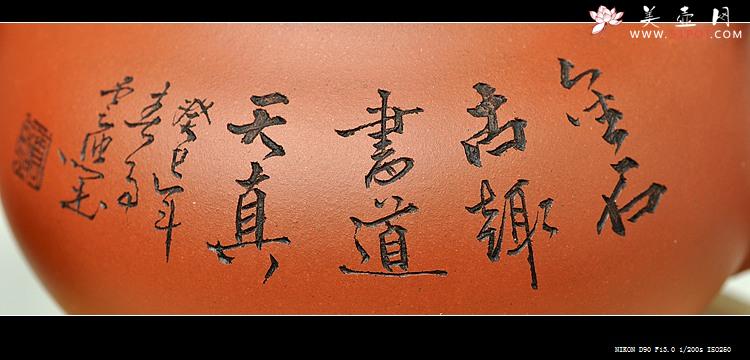 美壶网
金石
古趣
書道
天真
癸巳年
春月
NIKON D90 F13.0 1/200s ISO250